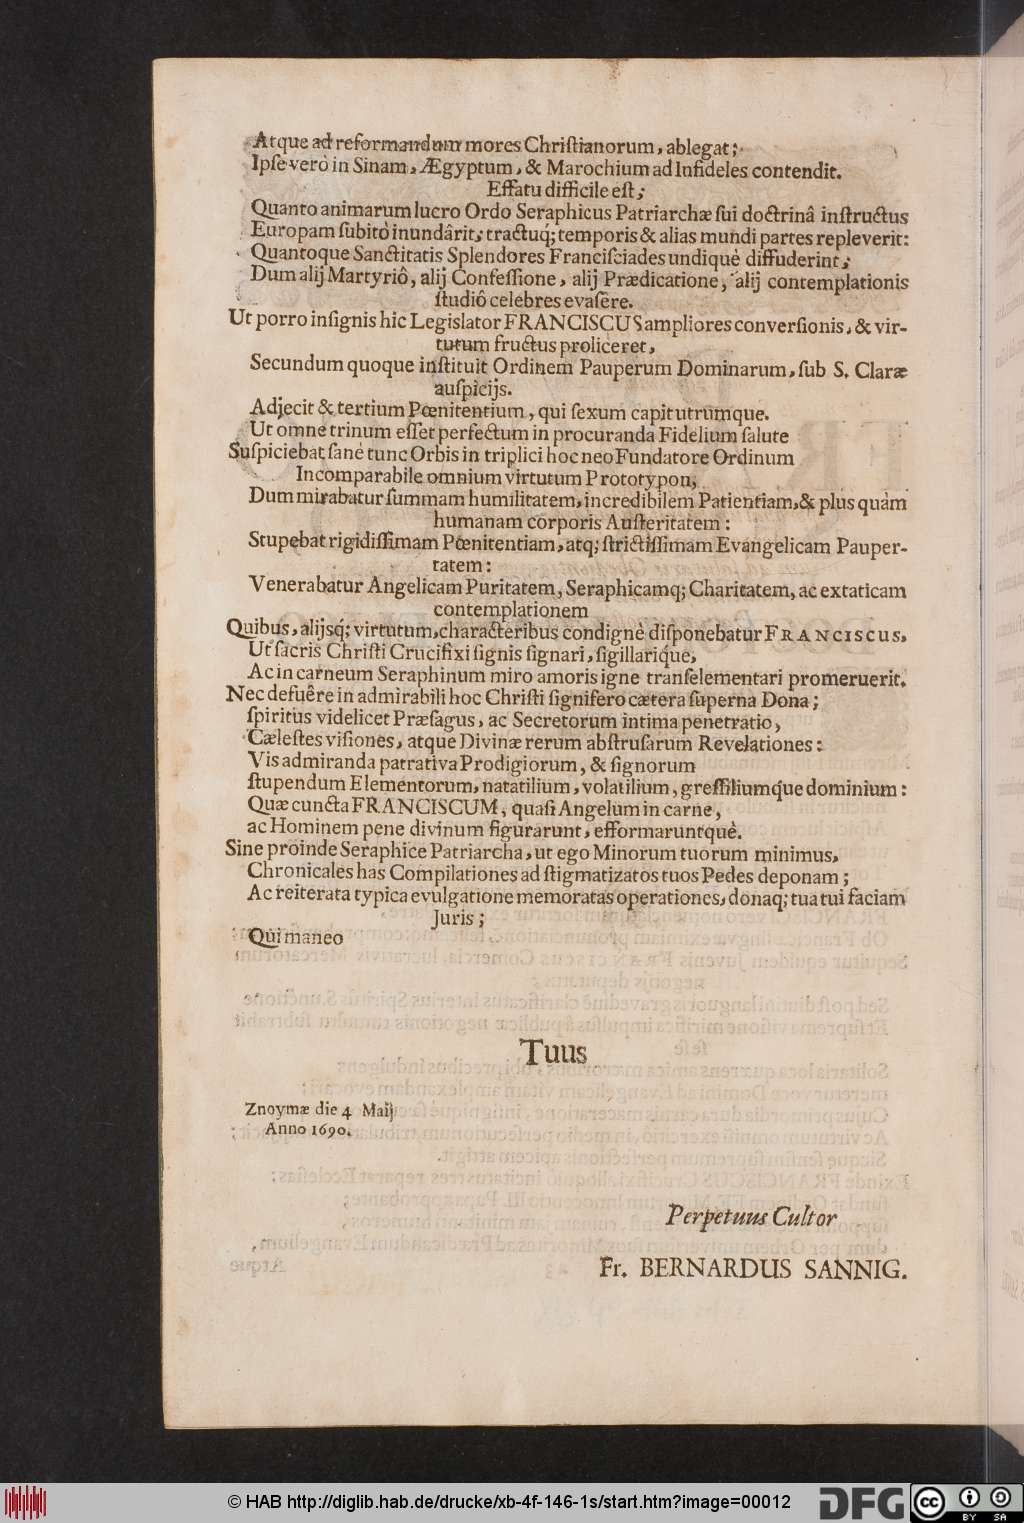 Atque ad reformandum mores Chriſtianorum, ablegat;
Ipſe verò in Sinam, Ægyptum, & Marochium ad Infideles contendit.
Effatu difficile eſt;
Quanto animarum lucro Ordo Seraphicus Patriarchæ ſui doctrinâ inſtructus
Europam ſubitò inundârit; tractuq; temporis & alias mundi partes repleverit:
Quantoque Sanctitatis Splendores Franciſciades undiquè diffuderint;
Dum alij Martyriô, alij Confeſſione, alij Prædicatione, alij contemplationis
ſtudiô celebres evaſêre.
Ut porro inſignis hic Legislator FRANCISCUS ampliores converſionis, & vir-
tutum fructus proliceret,
Secundum quoque inſtituit Ordinem Pauperum Dominarum, ſub S. Claræ
auſpicijs.
Adjecit & tertium Pœnitentium, qui ſexum capit utrumque.
Ut omne trinum eſſet perfectum in procuranda Fidelium ſalute
Suſpiciebat ſanè tunc Orbis in triplici hoc neo Fundatore Ordinum
Incomparabile omnium virtutum Prototypon,
Dum mirabatur ſummam humilitatem, incredibilem Patientiam, & plus quàm
humanam corporis Auſteritatem:
Stupebat rigidiſſimam Pœnitentiam, atq; ſtrictiſſimam Evangelicam Pauper-
tatem:
Venerabatur Angelicam Puritatem, Seraphicamq; Charitatem, ac extaticam
contemplationem
Quibus, alijsq́; virtutum, characteribus condignè diſponebatur FRANCISCUS,
Ut ſacris Chriſti Crucifixi ſignis ſignari, ſigillariq́ue,
Ac in carneum Seraphinum miro amoris igne tranſelementari promeruerit.
Nec defuêre in admirabili hoc Chriſti ſignifero cætera ſuperna Dona;
ſpiritus videlicet Præſagus, ac Secretorum intima penetratio,
Cæleſtes viſiones, atque Divinæ rerum abſtruſarum Revelationes:
Vis admiranda patrativa Prodigiorum, & ſignorum
ſtupendum Elementorum, natatilium, volatilium, greſſiliumq́ue dominium:
Quæ cuncta FRANCISCUM, quaſi Angelum in carne,
ac Hominem pene divinum figurarunt, efformaruntquè.
Sine proinde Seraphice Patriarcha, ut ego Minorum tuorum minimus,
Chronicales has Compilationes ad ſtigmatizatos tuos Pedes deponam;
Ac reiterata typica evulgatione memoratas operationes, donaq; tua tui faciam
Juris;
Qui maneo
Tuus
Znoymæ die 4 Maij
Anno 1690.
Perpetuus Cultor
Fr. BERNARDUS SANNIG.
© HAB http://diglib.hab.de/drucke/xb-4f-146-1s/start.htm?image=00012
DFG
cc BY SA